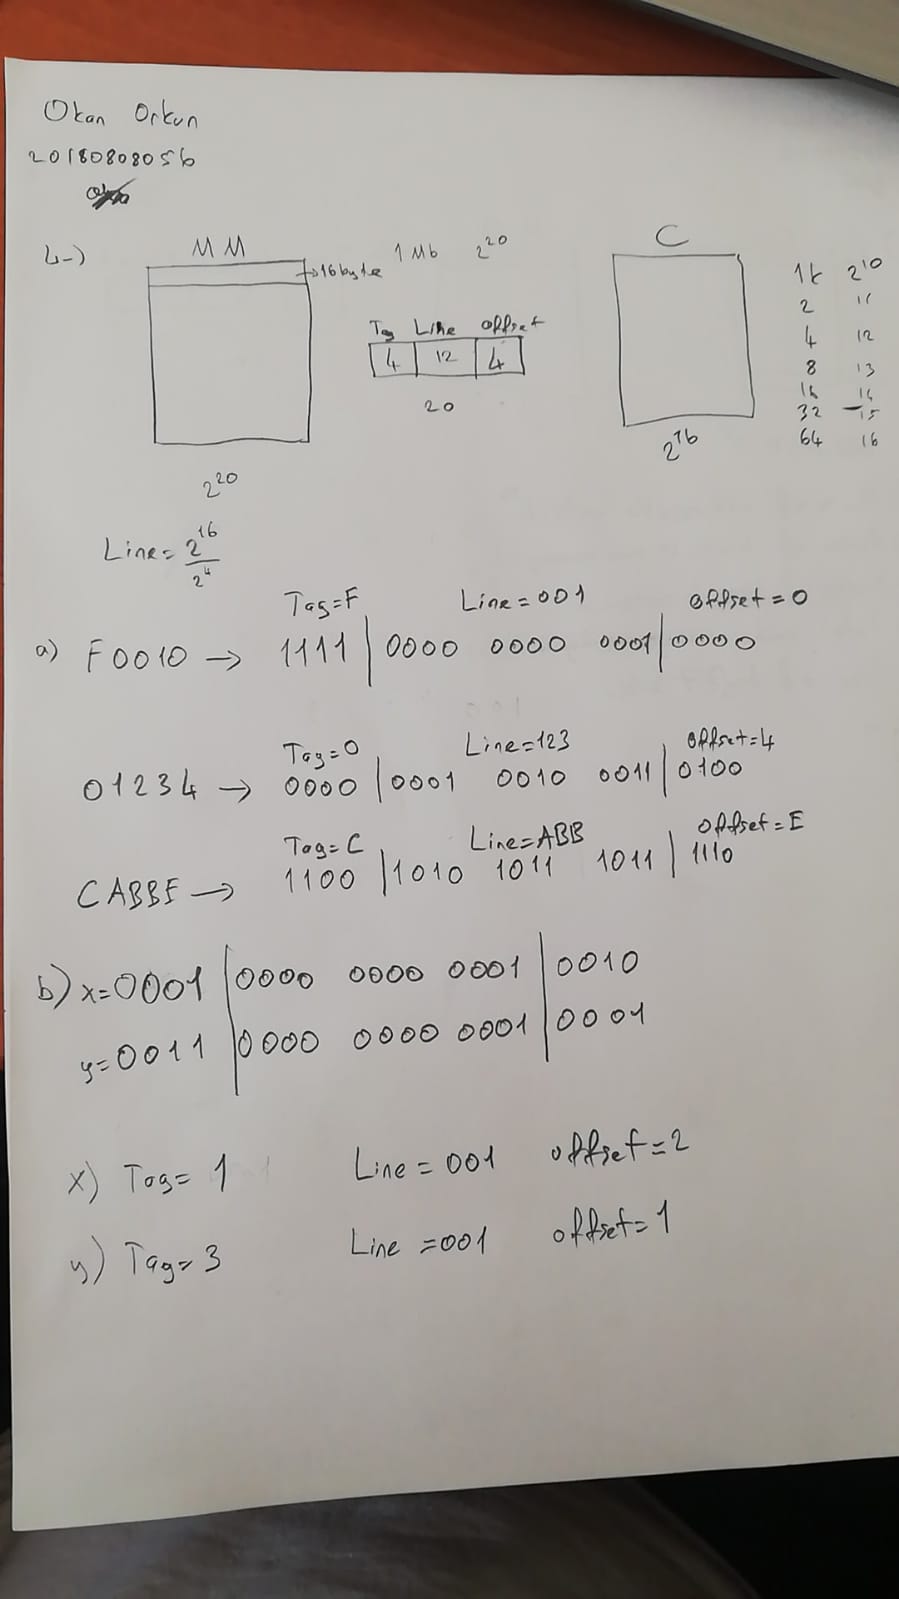 Okan Orkun
20180808056
4-)
MM
→16byte
1 Mb 2^20
Tag Line offset
4 12 4
20
2^20
C
2^16
1k 2^10
2 11
4 12
8 13
16 14
32 15
64 16
Line = 2^16 / 2^4
Tag=F Line=001 offset=0
a) F0010 → 1111 | 0000 0000 0001 | 0000
Tag=0 Line=123 offset=4
01234 → 0000 | 0001 0010 0011 | 0100
Tag=C Line=ABB offset=E
CABBE → 1100 | 1010 1011 1011 | 1110
b) x=0001 | 0000 0000 0001 | 0010
y=0011 | 0000 0000 0001 | 0001
x) Tag= 1 Line = 001 offset=2
y) Tag= 3 Line =001 offset=1